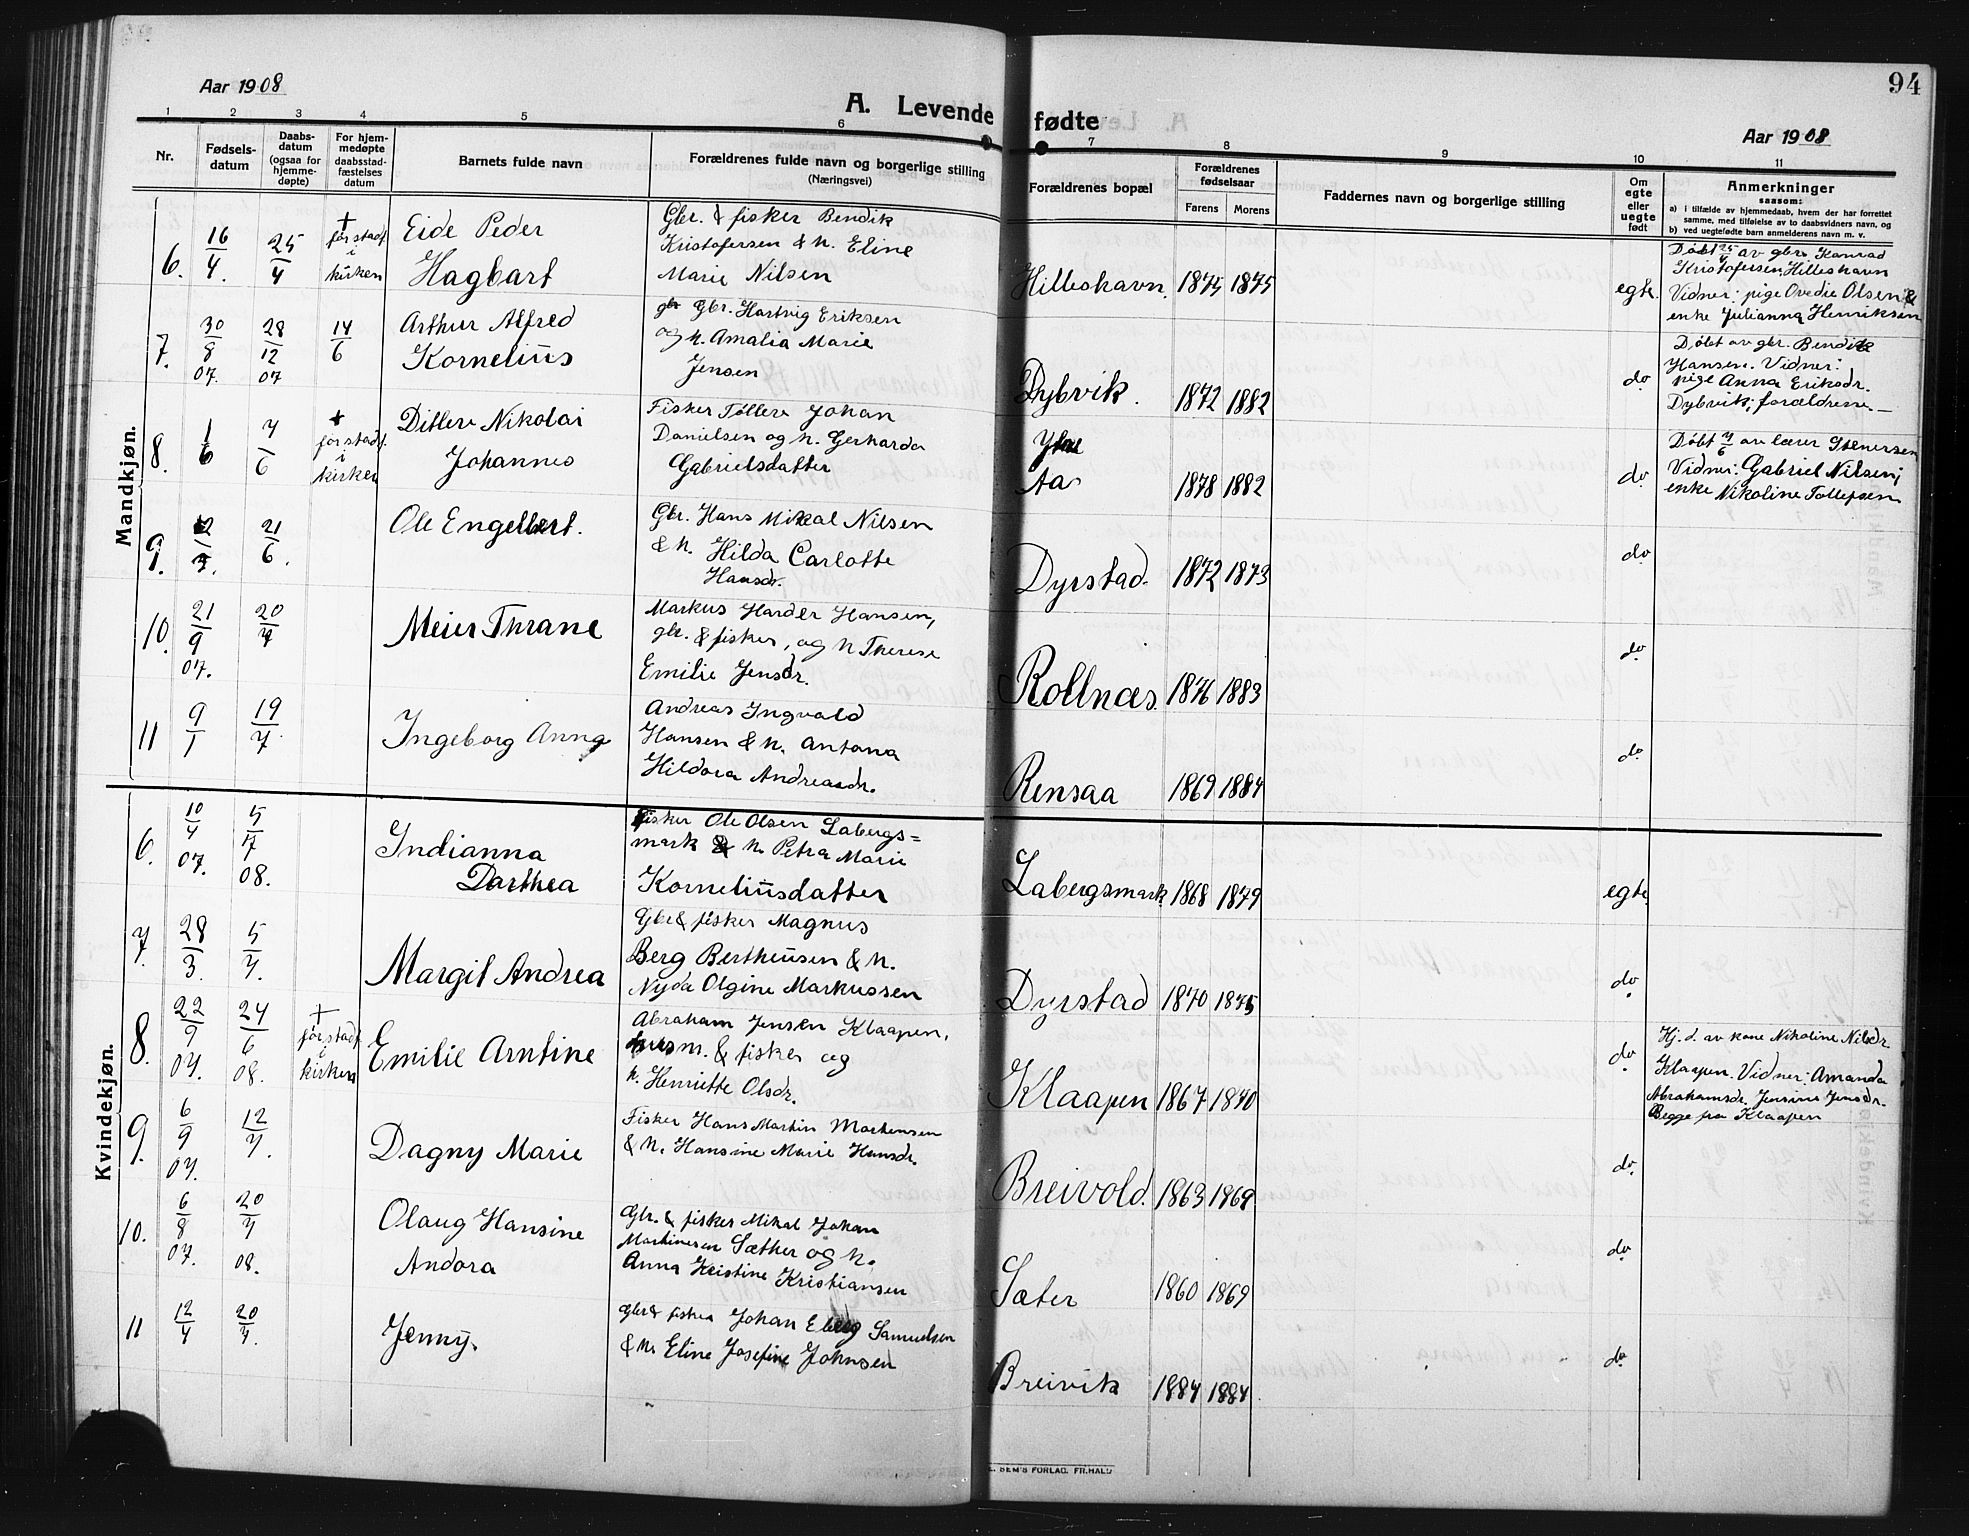 94
Aar 1908
A. Levende fødte
Aar 1908
1 2 3 4 5 6 7 8 9 10 11
Nr.
Fødsels-
datum
Daabs-
datum
(ogsaa for
hjemme-
døpte)
For hjem-
medøpte
daabsstad-
fæstelses
datum
Barnets fulde navn
Forældrenes fulde navn og borgerlige stilling
(Næringsvei)
Forældrenes bopæl
Forældrenes
fødselsaar
Farens Morens
Faddernes navn og borgerlige stilling
Om
egte
eller
uegte
født
Anmerkninger
saasom:
a) i tilfælde av hjemmedaab, hvem der har forrettet
samme, med tilføielse av to daabsvidners navn, og
b) ved uegtefødte barn anmelderens navn m. v.
Mandkjøn.
6. 16/4. 25/4
+
før stadf.
i
kirken
Eide Peder
Hagbart
Gbr. & fisker Bendik
Kristofersen & h. Eline
Marie Nilsen
Hilleshavn. 1875 1875
egte.
Døbt 25/4 av gbr. Konrad
Kristofersen, Hilleshavn
Vidner: pige Ovedie Olsen &
enke Julianna Henriksen
7. 30/8 07. 28/12 07 14/6
Arthur Alfred
Kornelius
Gbr. Hartvig Eriksen
og h. Amalia Marie
Jensen
Dybvik. 1872 1882
do
Døbt av gbr. Bendik
Hansen. Vidner:
pige Anna Eriksdr.
Dybvik; forældrene.—
8. 1/6 7/6
+
før stadf.
i
kirken
Ditlev Nikolai
Johannes
Fisker Tollev Johan
Danielsen og h. Gerharda
Gabrielsdatter
Aa 1878 1882
do
Døbt 7/6 av lærer Stenersen
Vidner: Gabriel Nilsen;
enke Nikoline Tollefsen
9. 21/6.
Ole Engelbert.
Gbr. Hans Mikal Nilsen
& h. Hilda Carlotte
Hansdr.
Dyrstad. 1872 1873
do
10. 21/9 07. 20/7
Meier Thrane
Markus Harder Hansen,
gbr. & fisker, og h Therese
Emilie Jensdr.
Rollnæs. 1876 1883
do
11 9/1 19/7.
Ingeborg Anna
Andreas Ingvald
Hansen & h. Antona
Hildora Andreasdr.
Rensaa 1869 1884
do
Kvindekjøn.
6. 10/4 07. 5/7 08.
Indianna
Darthea
Fisker Ole Olsen Labergs=
mark & h. Petra Marie
Korneliusdatter
Labergsmark 1868 1879
egte.
7. 28/3. 5/7.
Margit Andrea
Gbr & fisker Magnus
Berg Bertheusen & h.
Nyda Olgine Markussen
Dyrstad 1870 1875
do
8. 22/9 07. 24/6 08.
+
før stadf.
i
kirken
Emilie Arntine
Abraham Jensen Klaapen,
husm. & fisker og
h. Henriette Olsdr.
Klaapen 1867 1870
do
Hj. d. av kone Nikoline Nilsdr.
Klaapen. Vidner: Amanda
Abrahamsdr. Jensine Jensdr.
Begge fra Klaapen
9. 6/9 07. 12/7.
Dagny Marie
Fisker Hans Martin Martensen
& h. Hansine Marie Hansdr.
Breivold. 1863 1869
do
10. 6/8 07. 20/7 08.
Olaug Hansine
Andora
Gbr. & fisker Mikal Johan
Martinesen Sæther og h.
Anna Kristine Kristiansen
Sæter 1860 1869
do
11 12/4 20/7.
Jenny.
Gbr & fisker Johan Eberg Samuelsen
& h. Eline Josefine Johnsen
Breivik 1884 1884.
do
SEM'S FORLAG, FR.HALD